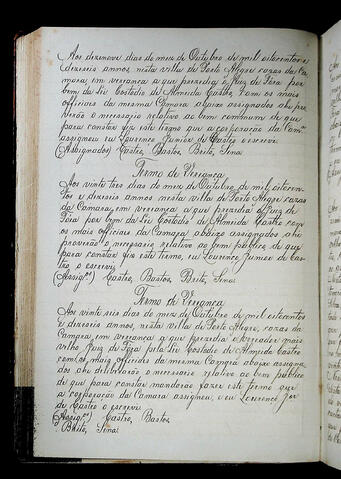 Aos dezenove dias do mez de Outubro de mil oitocentos e
dizeseis annos, nesta villa de Porto Alegre cazas da Ca-
mara, em vereança a que prezidio o Juiz de Fóra por
bem da Lei Costodio de Almeida Castro, com os mais
officiais da mesma Camara abaixo assignados ahi pro-
verão o necessario relativo ao bem commum de que
para constar fiz este termo que a corporação da Camª
assigneu eu Lourenço Junior de Castro o escrevi
(Assignados) Castro, Bastos, Brito, Sena
Termo de Vereança
Aos vinte tres dias do mez de Outubro, de mil oitocen-
tos e dizeseis annos nesta villa de Porto Alegre cazas
da Camara, em vereança a que prezidio o Juiz de
Fóra por bem da Lei Costodio de Almeida Castro com
os mais officiais da Camara abaixo assignados ahi
proverão o necessario relativo ao bem publico de que
para constar fiz este termo, eu Lourenço Junior de Cas-
tro o escrevi
(Assigos) Castro, Bastos, Brito, Sena
Termo de Vereança
Aos vinte seis dias do mez de Outubro de mil oitocentos
e dizeseis annos, nesta villa de Porto Alegre, cazas da
Camara em vereança a que prezidio o vereador mais
velho Juiz de Fóra pela Lei Costodio de Almeida Castro
com os mais officiais da mesma Camara abaixo assigna-
dos ahi deliberarão o necessario relativo ao bem publico
de que para constar mandarão fazer este termo que
a corporação da Camara assigneu, eu Lourenço Jor
de Castro o escrevi
(Assigos) Castro, Bastos,
Brito, Sena